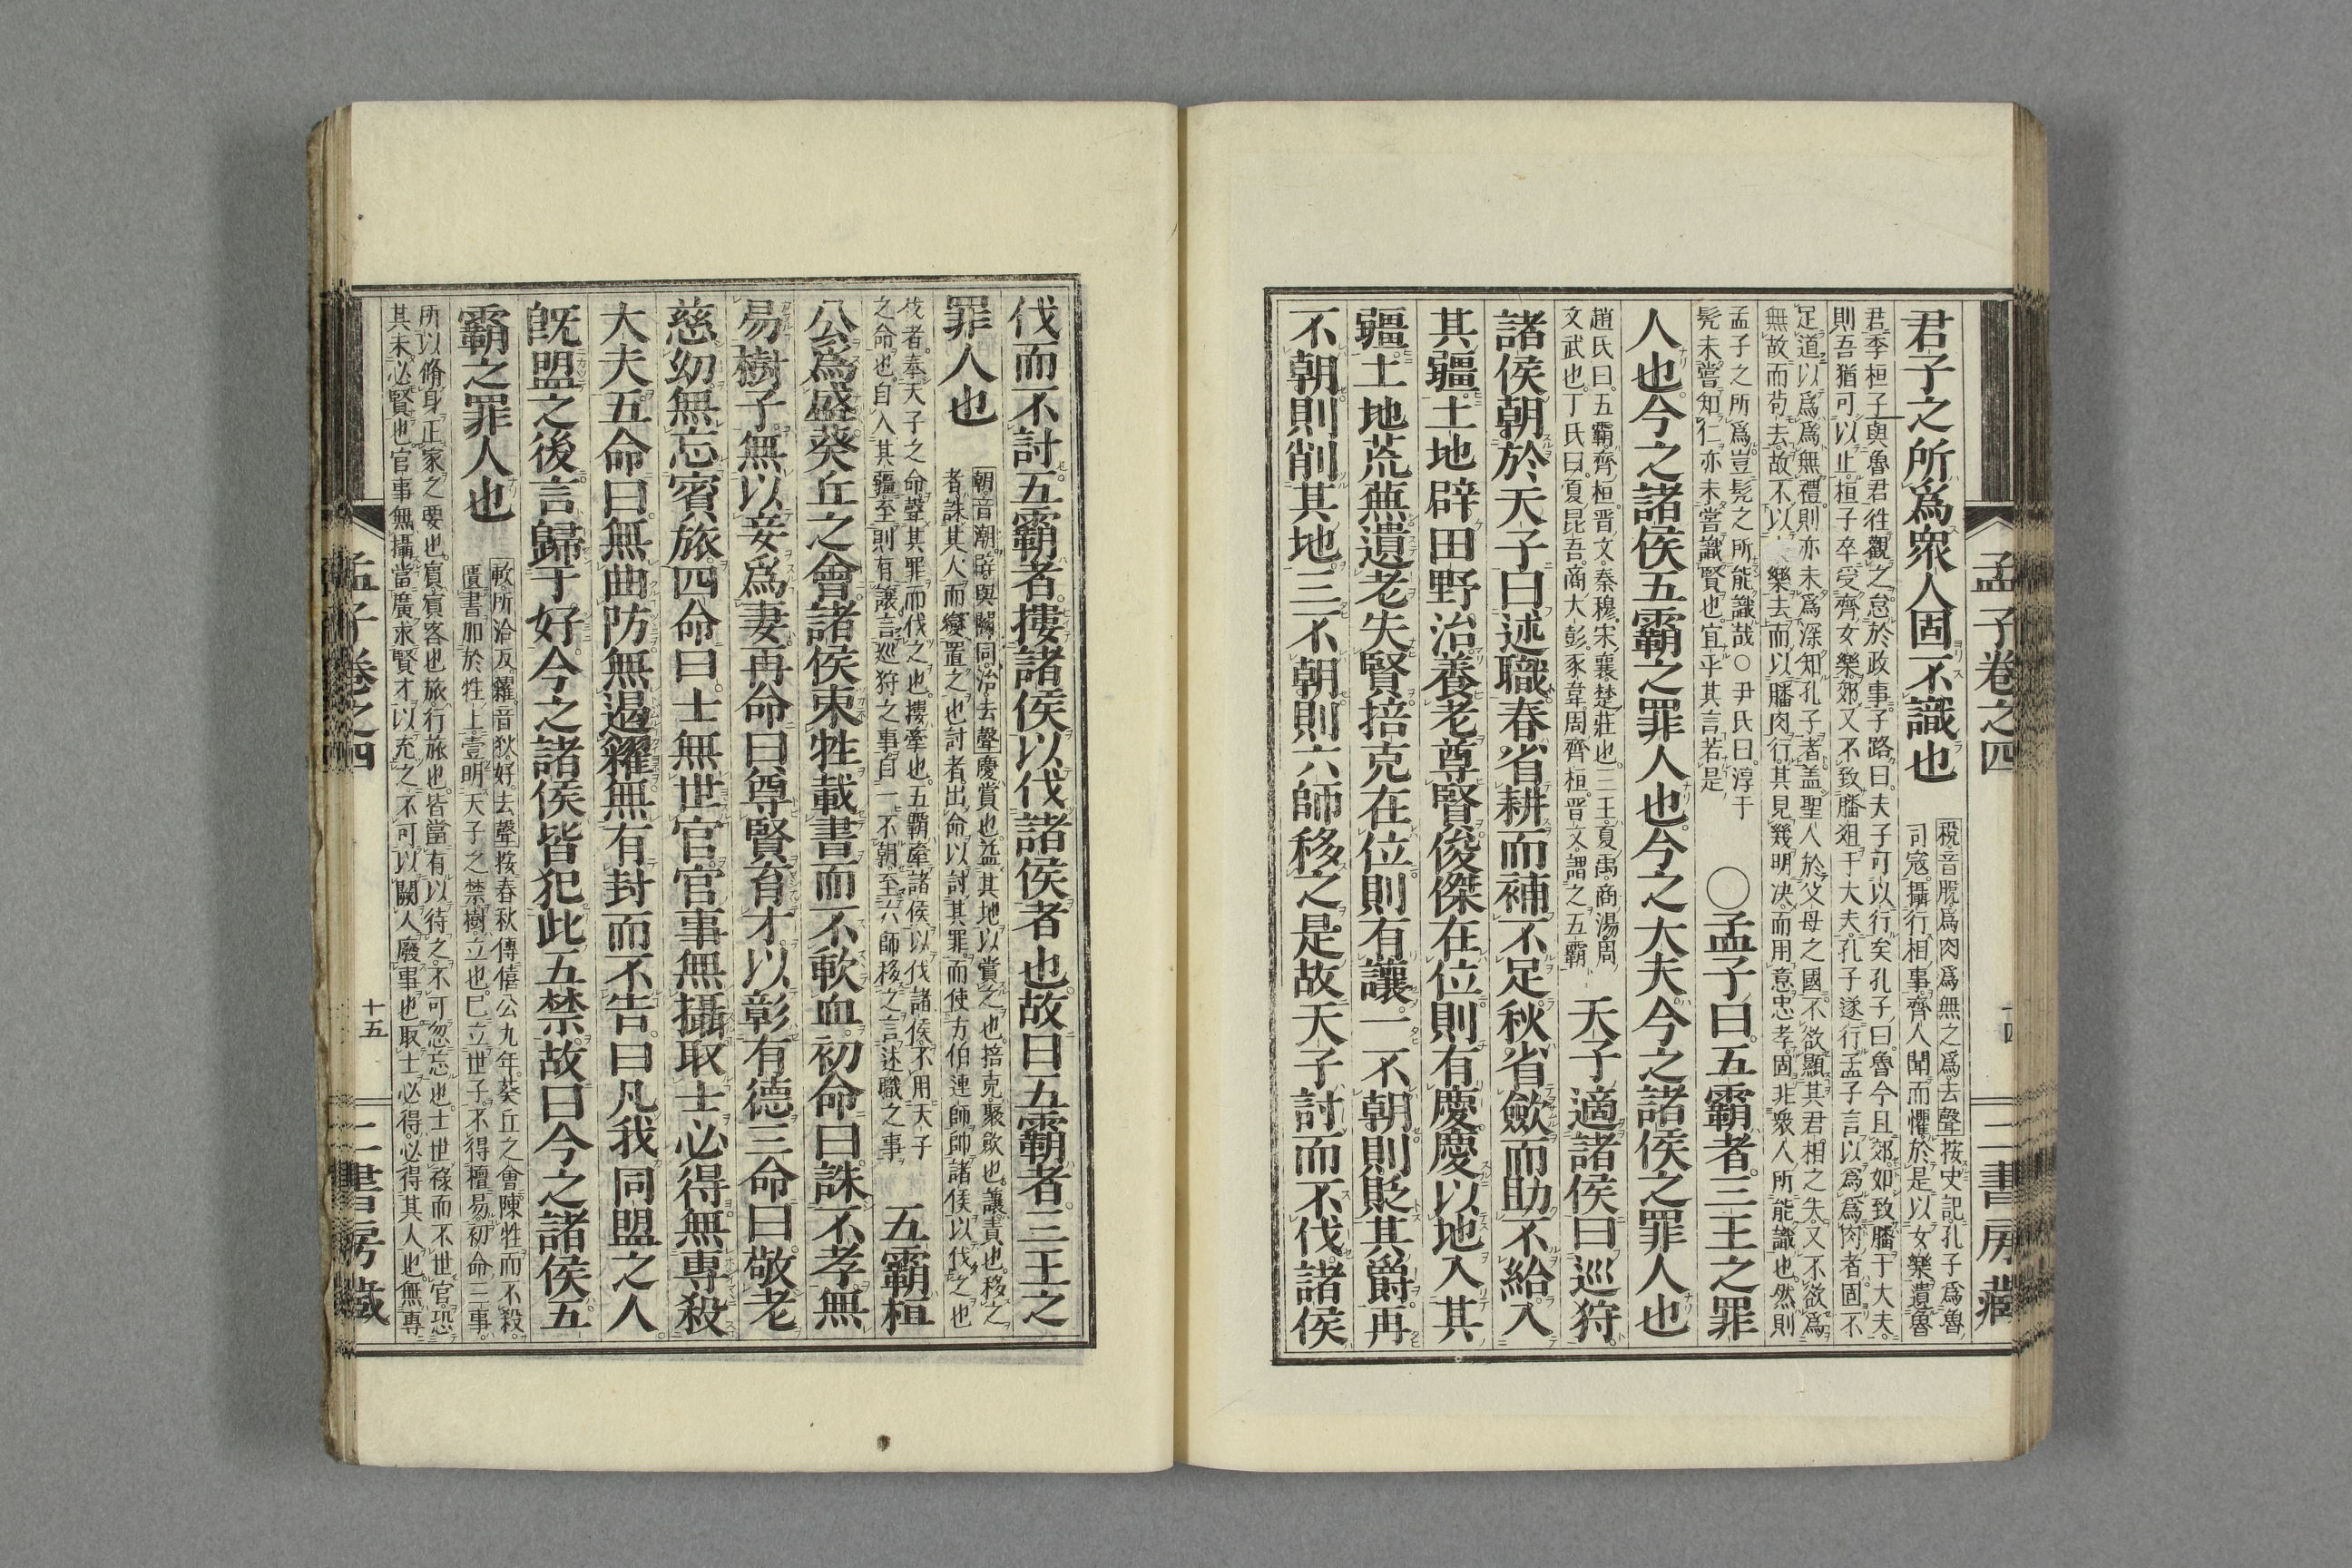 孟子卷之四
二書房藏
君子之所爲衆人固不識也
稅音脫爲肉爲無之爲去聲按史記孔子爲魯
司寇攝行相事齊人聞而懼於是以女樂遺魯
君季桓子與魯君徃觀之怠於政事子路曰夫子可以行矣孔子曰魯今且郊如致膰于大夫
則吾猶可以止桓子卒受齊女樂郊又不致膰俎于大夫孔子遂行孟子言以爲爲肉者固不
足道以爲爲無禮則亦未爲深知孔子者盖聖人於父母之國不欲顯其君相之失又不欲爲
無故而苟去故不以樂去而以膰肉行其見幾明决而用意忠孝固非衆人所能識也然則
孟子之所爲豈髠之所能識哉○尹氏曰淳于
髠未嘗知仁亦未嘗識賢也宜乎其言若是
○孟子曰五霸者三王之罪
人也今之諸侯五霸之罪人也今之大夫今之諸侯之罪人也
趙氏曰五霸齊桓晋文秦穆宋襄楚莊也三王夏禹商湯周
文武也丁氏曰夏昆吾商大彭豕韋周齊桓晋文謂之五霸
天子適諸侯曰巡狩
諸侯朝於天子曰述職春省耕而補不足秋省歛而助不給入
其疆土地辟田野治養老尊賢俊傑在位則有慶慶以地入其
疆土地荒蕪遺老失賢掊克在位則有讓一不朝則貶其爵再
不朝則削其地三不朝則六師移之是故天子討而不伐諸侯
伐而不討五霸者摟諸侯以伐諸侯者也故曰五霸者三王之
罪人也
朝音潮辟與闢同治去聲慶賞也益其地以賞之也掊克聚歛也讓責也移之
者誅其人而變置之也討者出命以討其罪而使方伯連帥帥諸侯以伐之也
伐者奉天子之命聲其罪而伐之也摟牽也五霸牽諸侯以伐諸侯不用天子
之命也自入其疆至則有讓言巡狩之事自一不朝至六師移之言述職之事
五霸桓
公爲盛葵丘之會諸侯束牲載書而不歃血初命曰誅不孝無
易樹子無以妾爲妻再命曰尊賢育才以彰有德三命曰敬老
慈幼無忘賓旅四命曰士無世官官事無攝取士必得無專殺
大夫五命曰無曲防無遏糴無有封而不告曰凡我同盟之人
旣盟之後言歸于好今之諸侯皆犯此五禁故曰今之諸侯五
霸之罪人也
歃所洽反糴音狄好去聲按春秋傳僖公九年葵丘之會陳牲而不殺
讀書加於牲上壹明天子之禁樹立也巳立世子不得擅易初命三事
所以脩身正家之要也賓賓客也旅行旅也皆當有以待之不可忽忘也士世祿而不世官恐
其未必賢也官事無攝當廣求賢才以充之不可以闕人廢事也取士必得必得其人也無專
孟子卷之四
十五
二書房藏